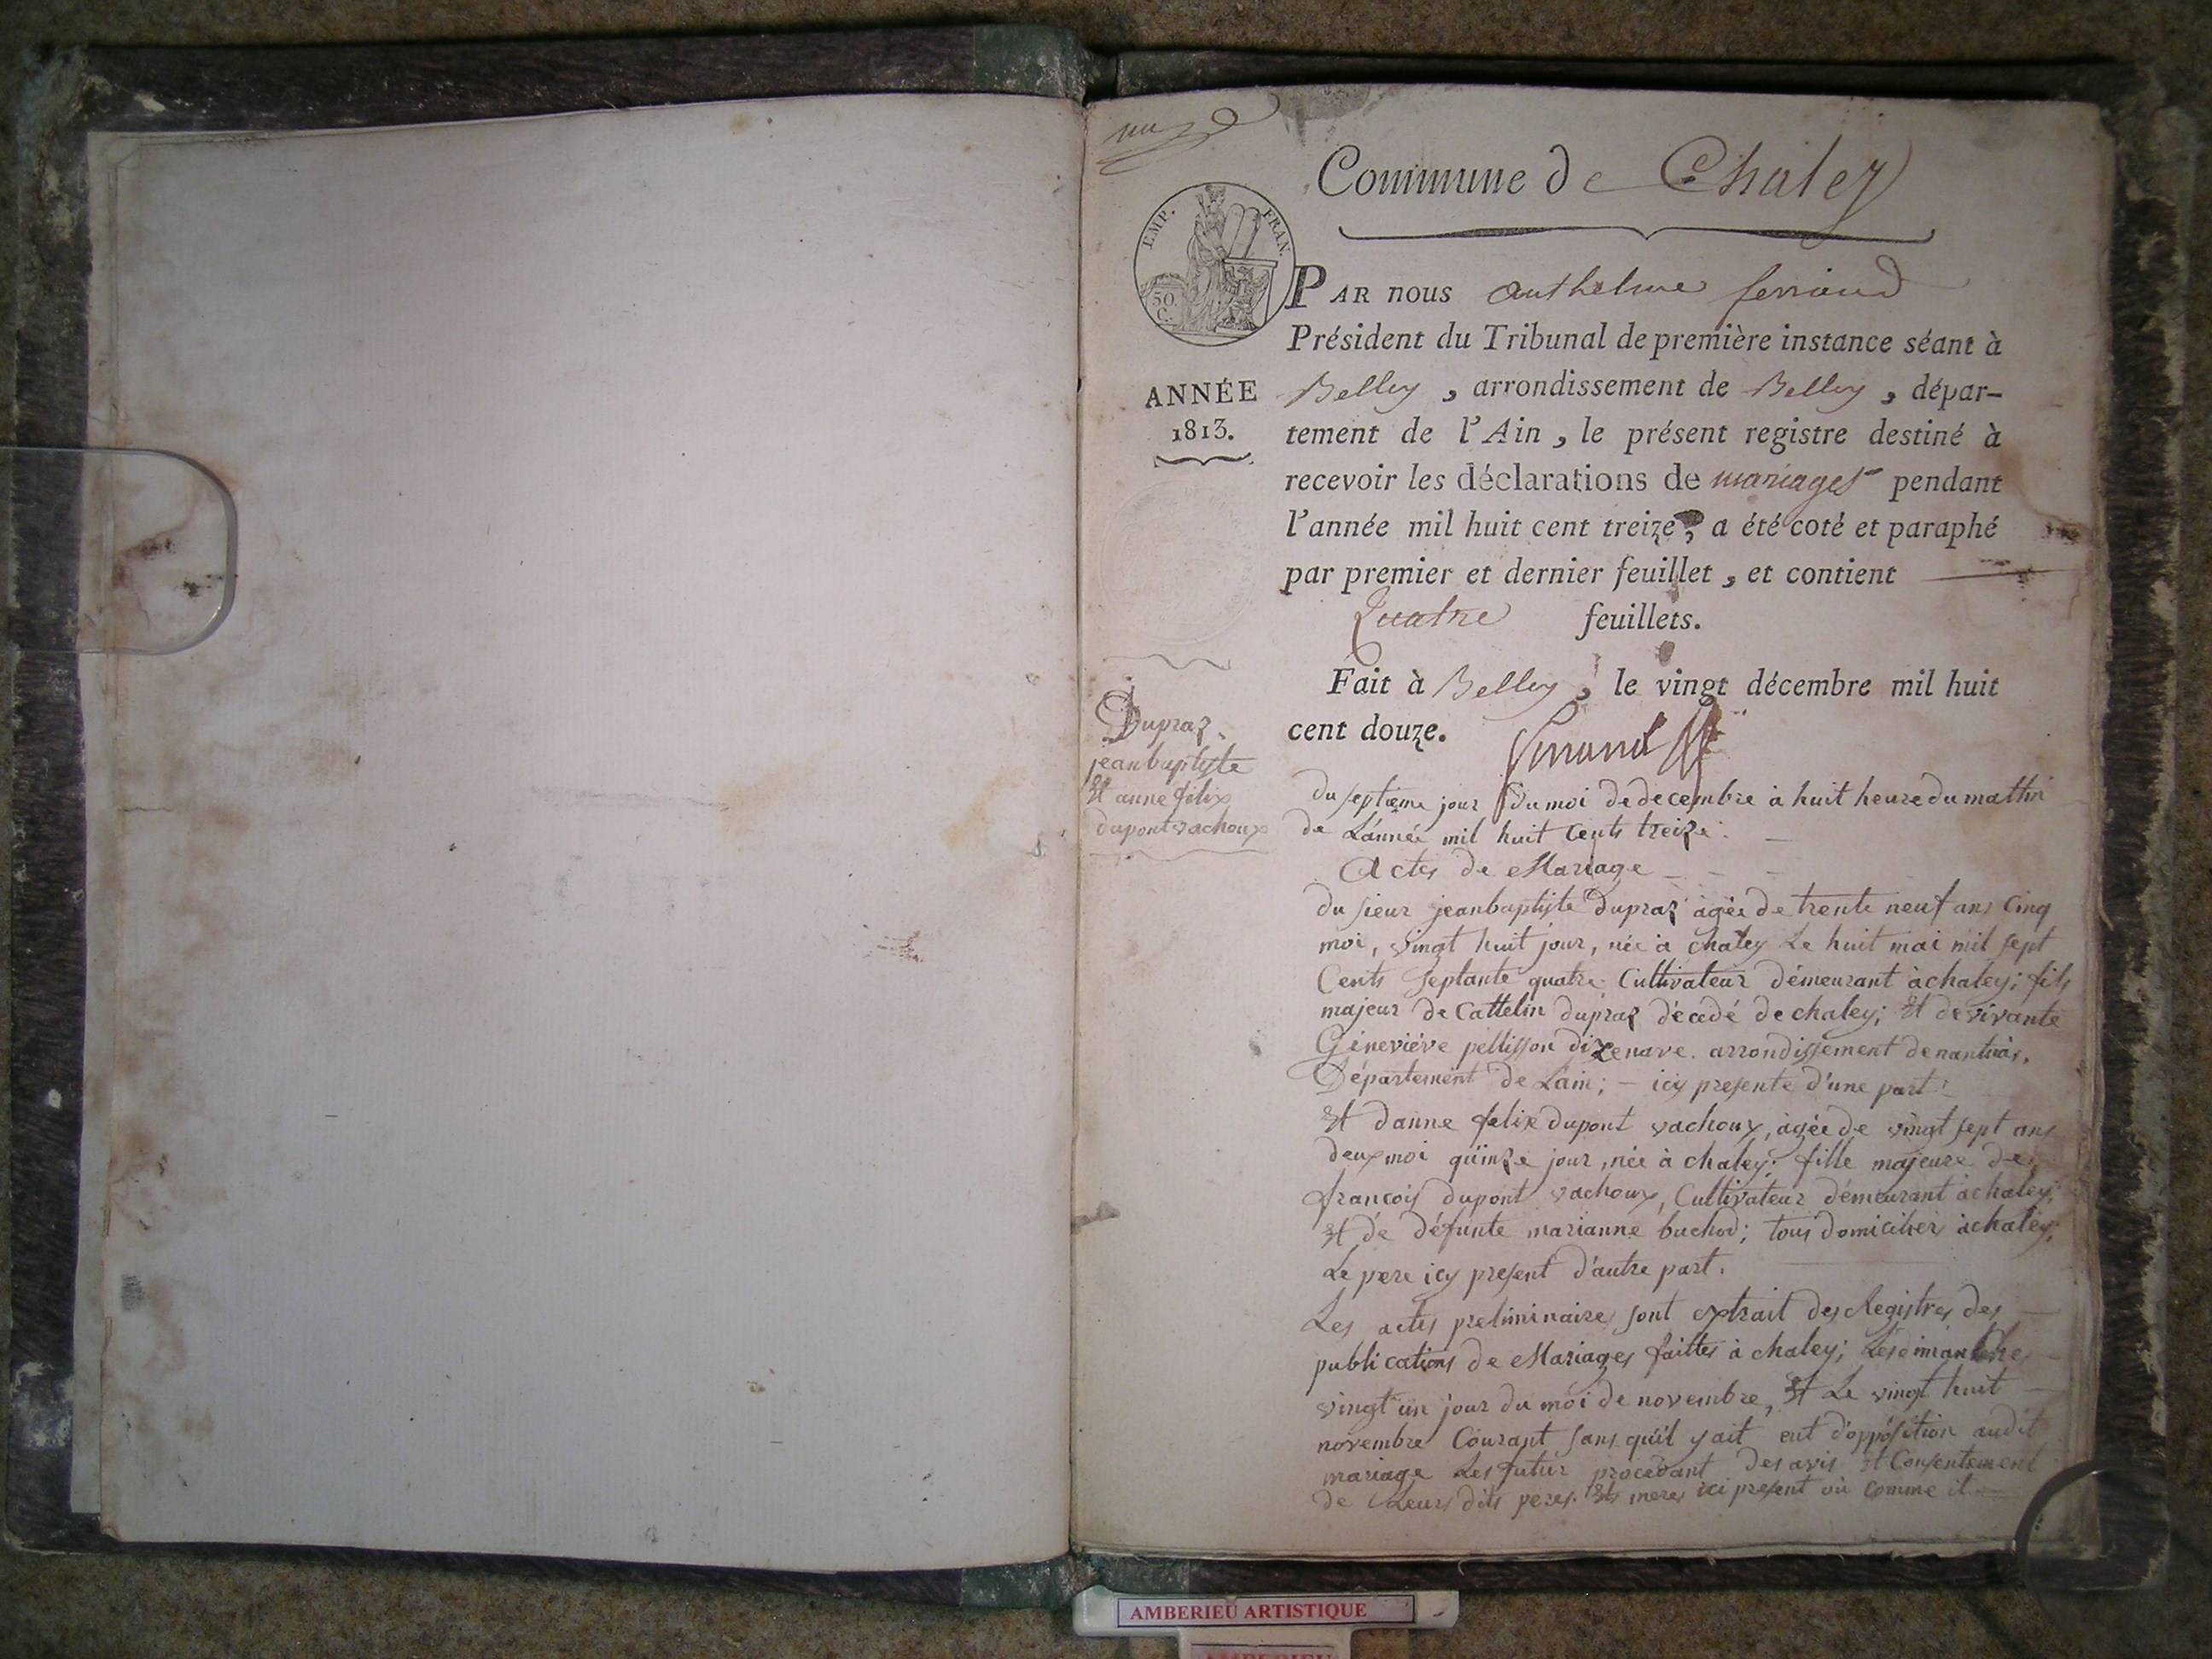 Commune de Chaley
EMP. FRAN.
50.
C.
PAR nous Anthelme ferrand
Président du Tribunal de première instance séant à
ANNÉE
1813.
Belley, arrondissement de Belley, dépar-
tement de l'Ain, le présent registre destiné à
recevoir les déclarations de mariages pendant
l'année mil huit cent treize, a été coté et paraphé
par premier et dernier feuillet, et contient
Quatre feuillets.
Fait à Belley, le vingt décembre mil huit
cent douze.
Ferrand
Dupraz
jeanbaptiste
Et anne félix
dupont vachoux
du septieme jour du moi de decembre à huit heure du mattin
de L'année mil huit Cents treize.
Actes de Mariage
du sieur jeanbaptiste Dupraz àgée de trente neuf ans Cinq
moi, vingt huit jour, née à chaley Le huit mai mil sept
Cents septante quatre Cultivateur démeurant à chaley; fils
majeur de Cattelin dupraz décédé de chaley; Et de vivante
Géneviéve pellisson arrondissement de nantua,
Département de Lain; - icy presente d'une part.
Et d'anne felix dupont vachoux, àgée de vingt sept ans
deux moi quinze jour, née à chaley; fille majeure de
francois dupont vachoux, Cultivateur démeurant à chaley;
Et de défunte marianne buchod; tous domicilier à chaley;
Le pere icy present d'autre part.
Les actes preliminaires sont extrait des Registres des
publications de Mariages faittes à chaley; Les dimanche
vingt un jour du moi de novembre, Et Le vingt huit
novembre Courant sans qu'il y ait eut d'oppósition audit
mariage Les futur procedant des avis Et Consentement
de Leurs dits peres Et meres ici present où comme il
AMBERIEU ARTISTIQUE
AMBERIEU